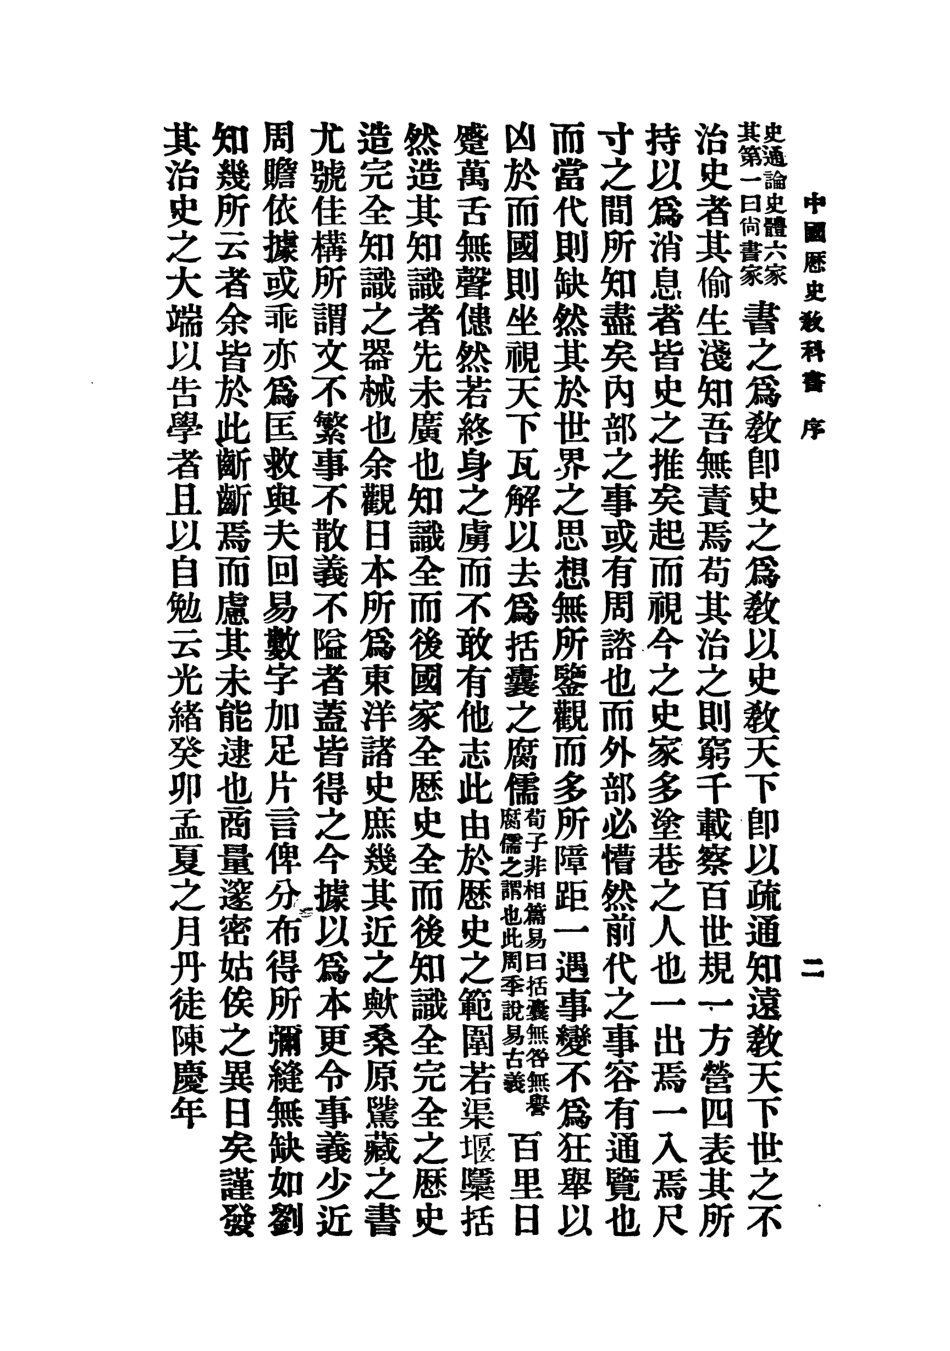 中國歷史敎科書 序 二
史通論史體六家
其第一曰尙書家
書之爲敎卽史之爲敎以史敎天下卽以疏通知遠敎天下世之不
治史者其偷生淺知吾無責焉苟其治之則窮千載察百世規一方營四表其所
持以爲消息者皆史之推矣起而視今之史家多塗巷之人也一出焉一入焉尺
寸之間所知盡矣內部之事或有周諮也而外部必懵然前代之事容有通覽也
而當代則缺然其於世界之思想無所鑒觀而多所障距一遇事變不爲狂舉以
凶於而國則坐視天下瓦解以去爲括囊之腐儒
荀子非相篇易曰括囊無咎無譽
腐儒之謂也此周季說易古義
百里日
蹙萬舌無聲僡然若終身之虜而不敢有他志此由於歷史之範圍若渠堰檃括
然造其知識者先未廣也知識全而後國家全歷史全而後知識全完全之歷史
造完全知識之器械也余觀日本所爲東洋諸史庶幾其近之歟桑原騭藏之書
尤號佳構所謂文不繁事不散義不隘者蓋皆得之今據以爲本更令事義少近
周贍依據或乖亦爲匡救與夫回易數字加足片言俾分布得所彌縫無缺如劉
知幾所云者余皆於此齗齗焉而慮其未能逮也商量邃密姑俟之異日矣謹發
其治史之大端以告學者且以自勉云光緒癸卯孟夏之月丹徒陳慶年